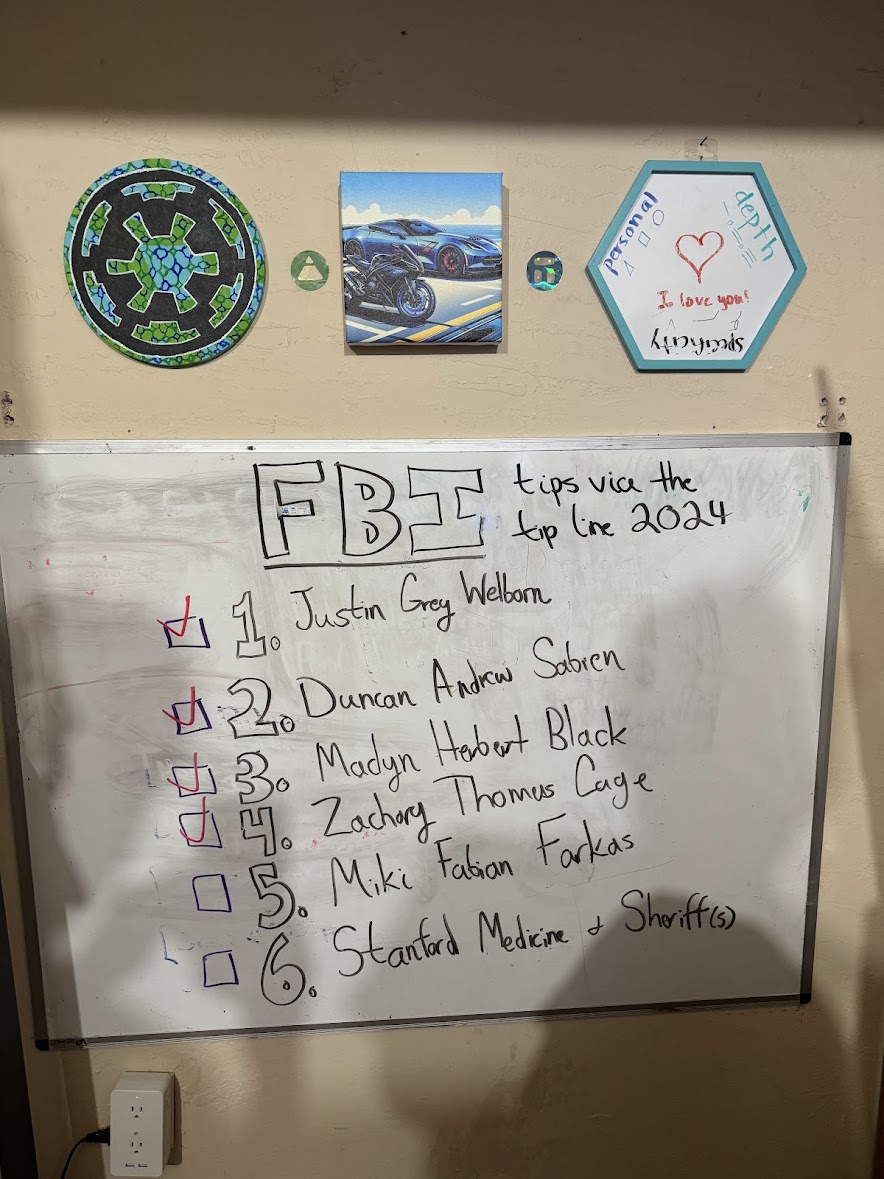 personal
depth
I love you!
specificity
FBI tips vice the
tip line 2024
1. Justin Grey Welborn
2. Duncan Andrew Sabien
3. Madyn Herbert Black
4. Zachory Thomas Cage
5. Miki Fabian Farkas
6. Stanford Medicine & Sheriff(s)